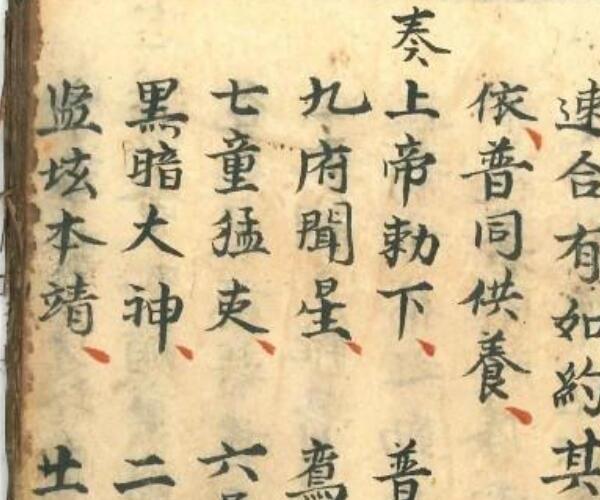 速合有如約其
依普同供養
奏上帝勅下普
九府聞星鸞
七童猛吏六
黑暗大神二
监坛本靖廿